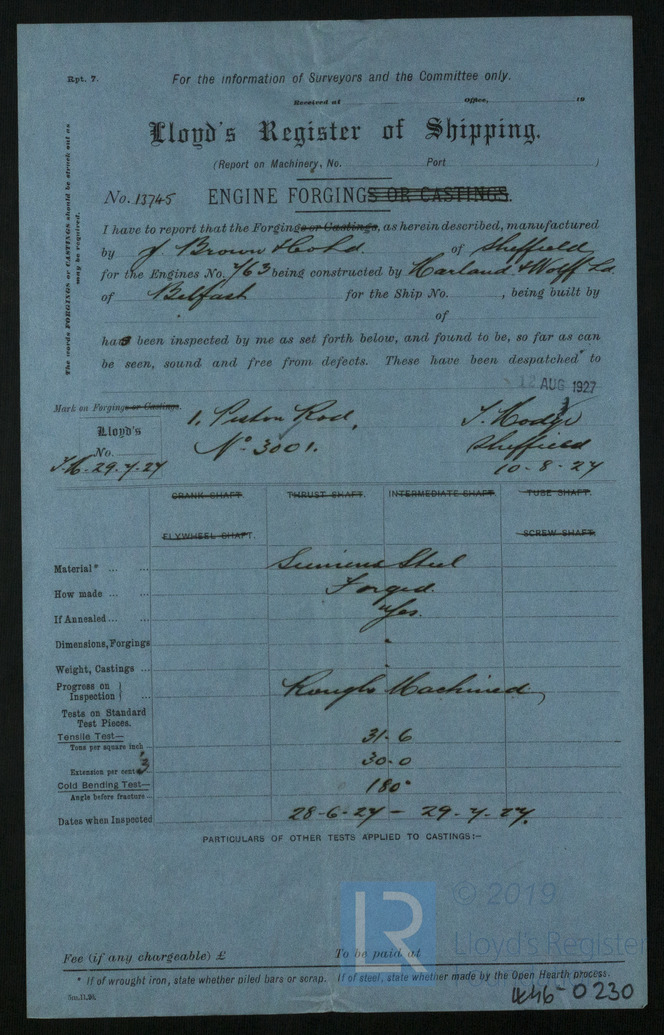 Rpt. 7.
For the information of Surveyors and the Committee only.
Received at Office, 19
Lloyd's Register of Shipping.
(Report on Machinery, No. Port )
No. 13745 ENGINE FORGINGS OR CASTINGS.
The words FORGINGS or CASTINGS should be struck out as
may be required.
I have to report that the Forgings or Castings, as herein described, manufactured
by J. Brown & Co Ld. of Sheffield
for the Engines No. 763 being constructed by Harland & Wolff Ld.
of Belfast for the Ship No. , being built by
of
has been inspected by me as set forth below, and found to be, so far as can
be seen, sound and free from defects. These have been despatched to
12 AUG 1927
Mark on Forgings or Castings.
1. Piston Rod,
Lloyd's
No.
No 3001.
Sheffield
29.7.27
10-8-27
CRANK SHAFT. THRUST SHAFT. INTERMEDIATE SHAFT. TUBE SHAFT.
FLYWHEEL SHAFT. SCREW SHAFT.
Material* ... ... Siemens Steel
How made ... ... Forged.
If Annealed ... ... Yes.
Dimensions, Forgings
Weight, Castings ...
Progress on Inspection } ... Rough Machined
Tests on Standard
Test Pieces.
Tensile Test—
Tons per square inch 31-6
Extension per cent 3 30-0
Cold Bending Test—
Angle before fracture 180°
Dates when Inspected 28-6-27 - 29-7-27.
PARTICULARS OF OTHER TESTS APPLIED TO CASTINGS:-
© 2019
LR
Lloyd's Register
Fee (if any chargeable) £ To be paid at
* If of wrought iron, state whether piled bars or scrap. If of steel, state whether made by the Open Hearth process.
446-0230